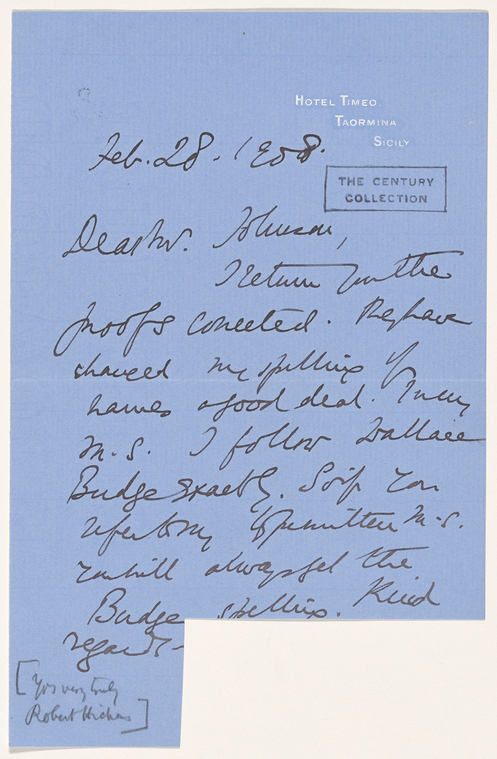 HOTEL TIMEO.
TAORMINA
SICILY
Feb. 28. 1908.
THE CENTURY
COLLECTION
Dear Mr. Johnson,
I return you the
proofs corrected. They have
changed my spelling of
names a good deal. In my
M.S. I follow Wallace
Budge exactly. So if you
refer to my typewritten M-S.
you will always get the
Budge spelling. Kind
regards -
[Yrs very truly
Robert Hichens]